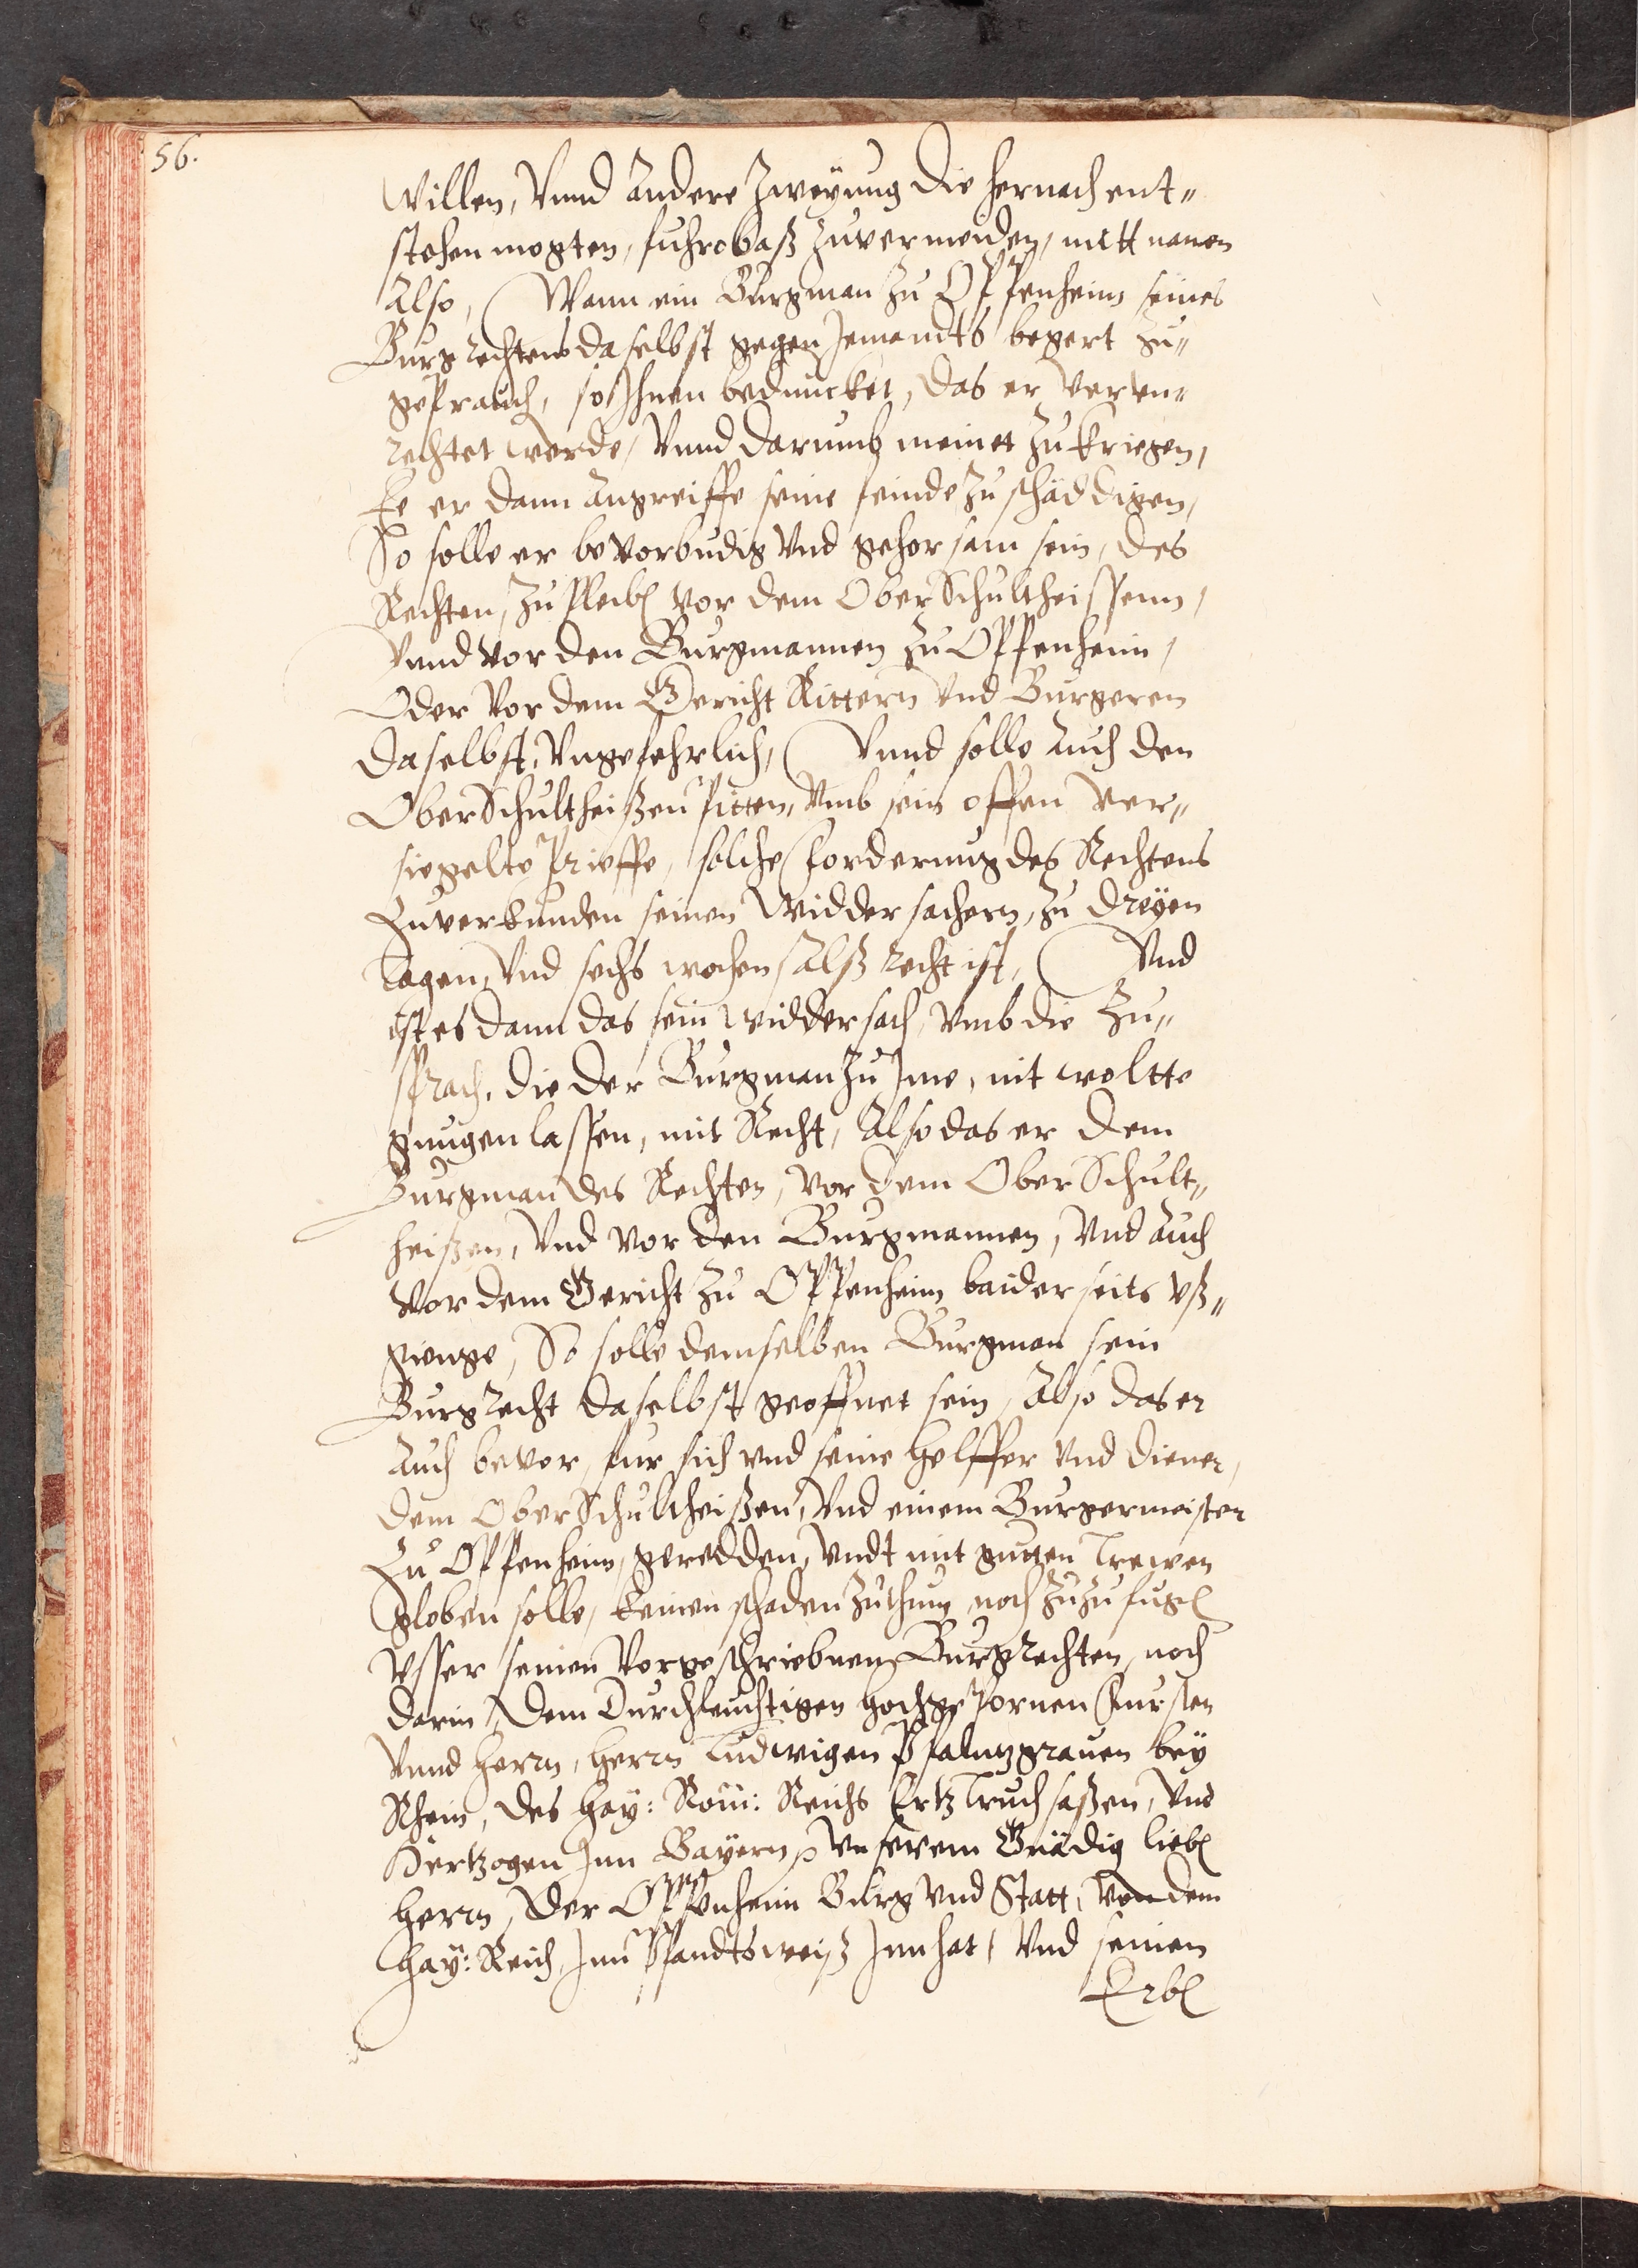 56.
Willen, Vnnd Andere Zweyung die hernach ent„
stehen mogten, fuhrobaß zuvermeiden, mitt namen
Also, Wann ein Burgman zu Oppenheim seines
Burgrechtens daselbst gegen Jemandts begert zu„
geprauch, so Ihnen beduncket, das er verun„
rechtet werde, Vnnd darumb meinet zu kriegen,
Ee er dann Angreiffe seine feinde zu schäddigen,
So solle er bevor budig Vnd gehorsam sein, des
Rechten, zu pleib vor dem OberSchultheissenn,
Vnnd vor den Burgmannen zu Oppenheim,
Oder Vor dem Gericht Rittern Vnd Burgeren
daselbst, Vngefehrlich, Vnnd solle Auch den
OberSchultheißen pitten, Vmb sein offen Ver„
siegelte Prieffe, solche forderung des Rechtens
Zuverkunden seinen Widdersachern, zu dreyen
tagen, Vnd sechs wochen Alß recht ist, Vnd
ist es dann das sein Widdersach, Vmb die Zu„
sprach, die der Burgman zu Jme, nit woltte
gnugen lassen, mit Recht, Also das er dem
Burgman des Rechten, vor dem OberSchult„
heißen, Vnd vor den Burgmannen, Vnd Auch
Vor dem Gericht zu Oppenheim baiderseits vß„
gienge, So solle demselben Burgman sein
Burgrecht daselbst geoffnet sein, Also das er
Auch bevor, fur sich vnd seine helffer Vnd diener,
dem OberSchultheißen, Vnd einem Burgermeister
Zu Oppenheim, geredden, Vndt mit gutten trewen
globen solle, keinen schaden zuthun noch zuzufug
Vsser seinen Vorgeschriebnen Burgrechten, noch
darin, dem Durchleuchtigen hochgepornen Fursten
Vnnd herrn, herrn Ludwigen Pfaltzgrauen bey
Rhein, des hay: Rom: Reichs Ertztruchsaßen, Vnd
Hertzogen Jnn Bayern, Vnserem Gnädig lieb
herrn, der Oppenheim Burg Vnd Statt, Von dem
hay: Reich, Jnn Pfandtsweiß Jnnhat, Vnd seinen
Erb